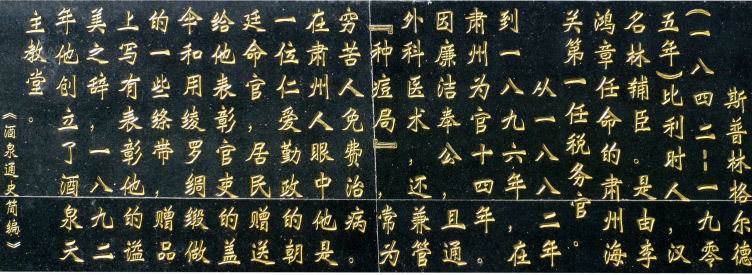 斯普林格尔德
(一八四二--一九零
五年)比利时人,汉
名林辅臣。是由李
鸿章任命的肃州海
关第一任税务官。
从一八八二年
到一八九六年,在
肃州为官十四年。
因廉洁奉公,且通
外科医术,还兼管
『种痘局』,常为
穷苦人免费治病。
在肃州人眼中他是
一位仁爱勤政的朝
廷命官,居民赠送
给他表彰官吏的盖
伞和用绫罗绸缎做
的一些绦带,赠品
上写有表彰他的谥
美之辞,一八九二
年他创立了酒泉天
主教堂。
《酒泉通史简编》